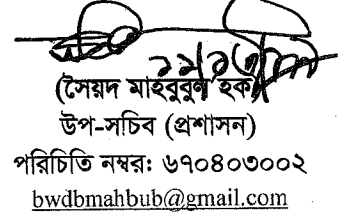 (সৈয়দ মাহবুবুল হক)
উপ-সচিব (প্রশাসন)
পরিচিতি নম্বর: ৬৭০৪০৩০০২
bwdbmahbub@gmail.com